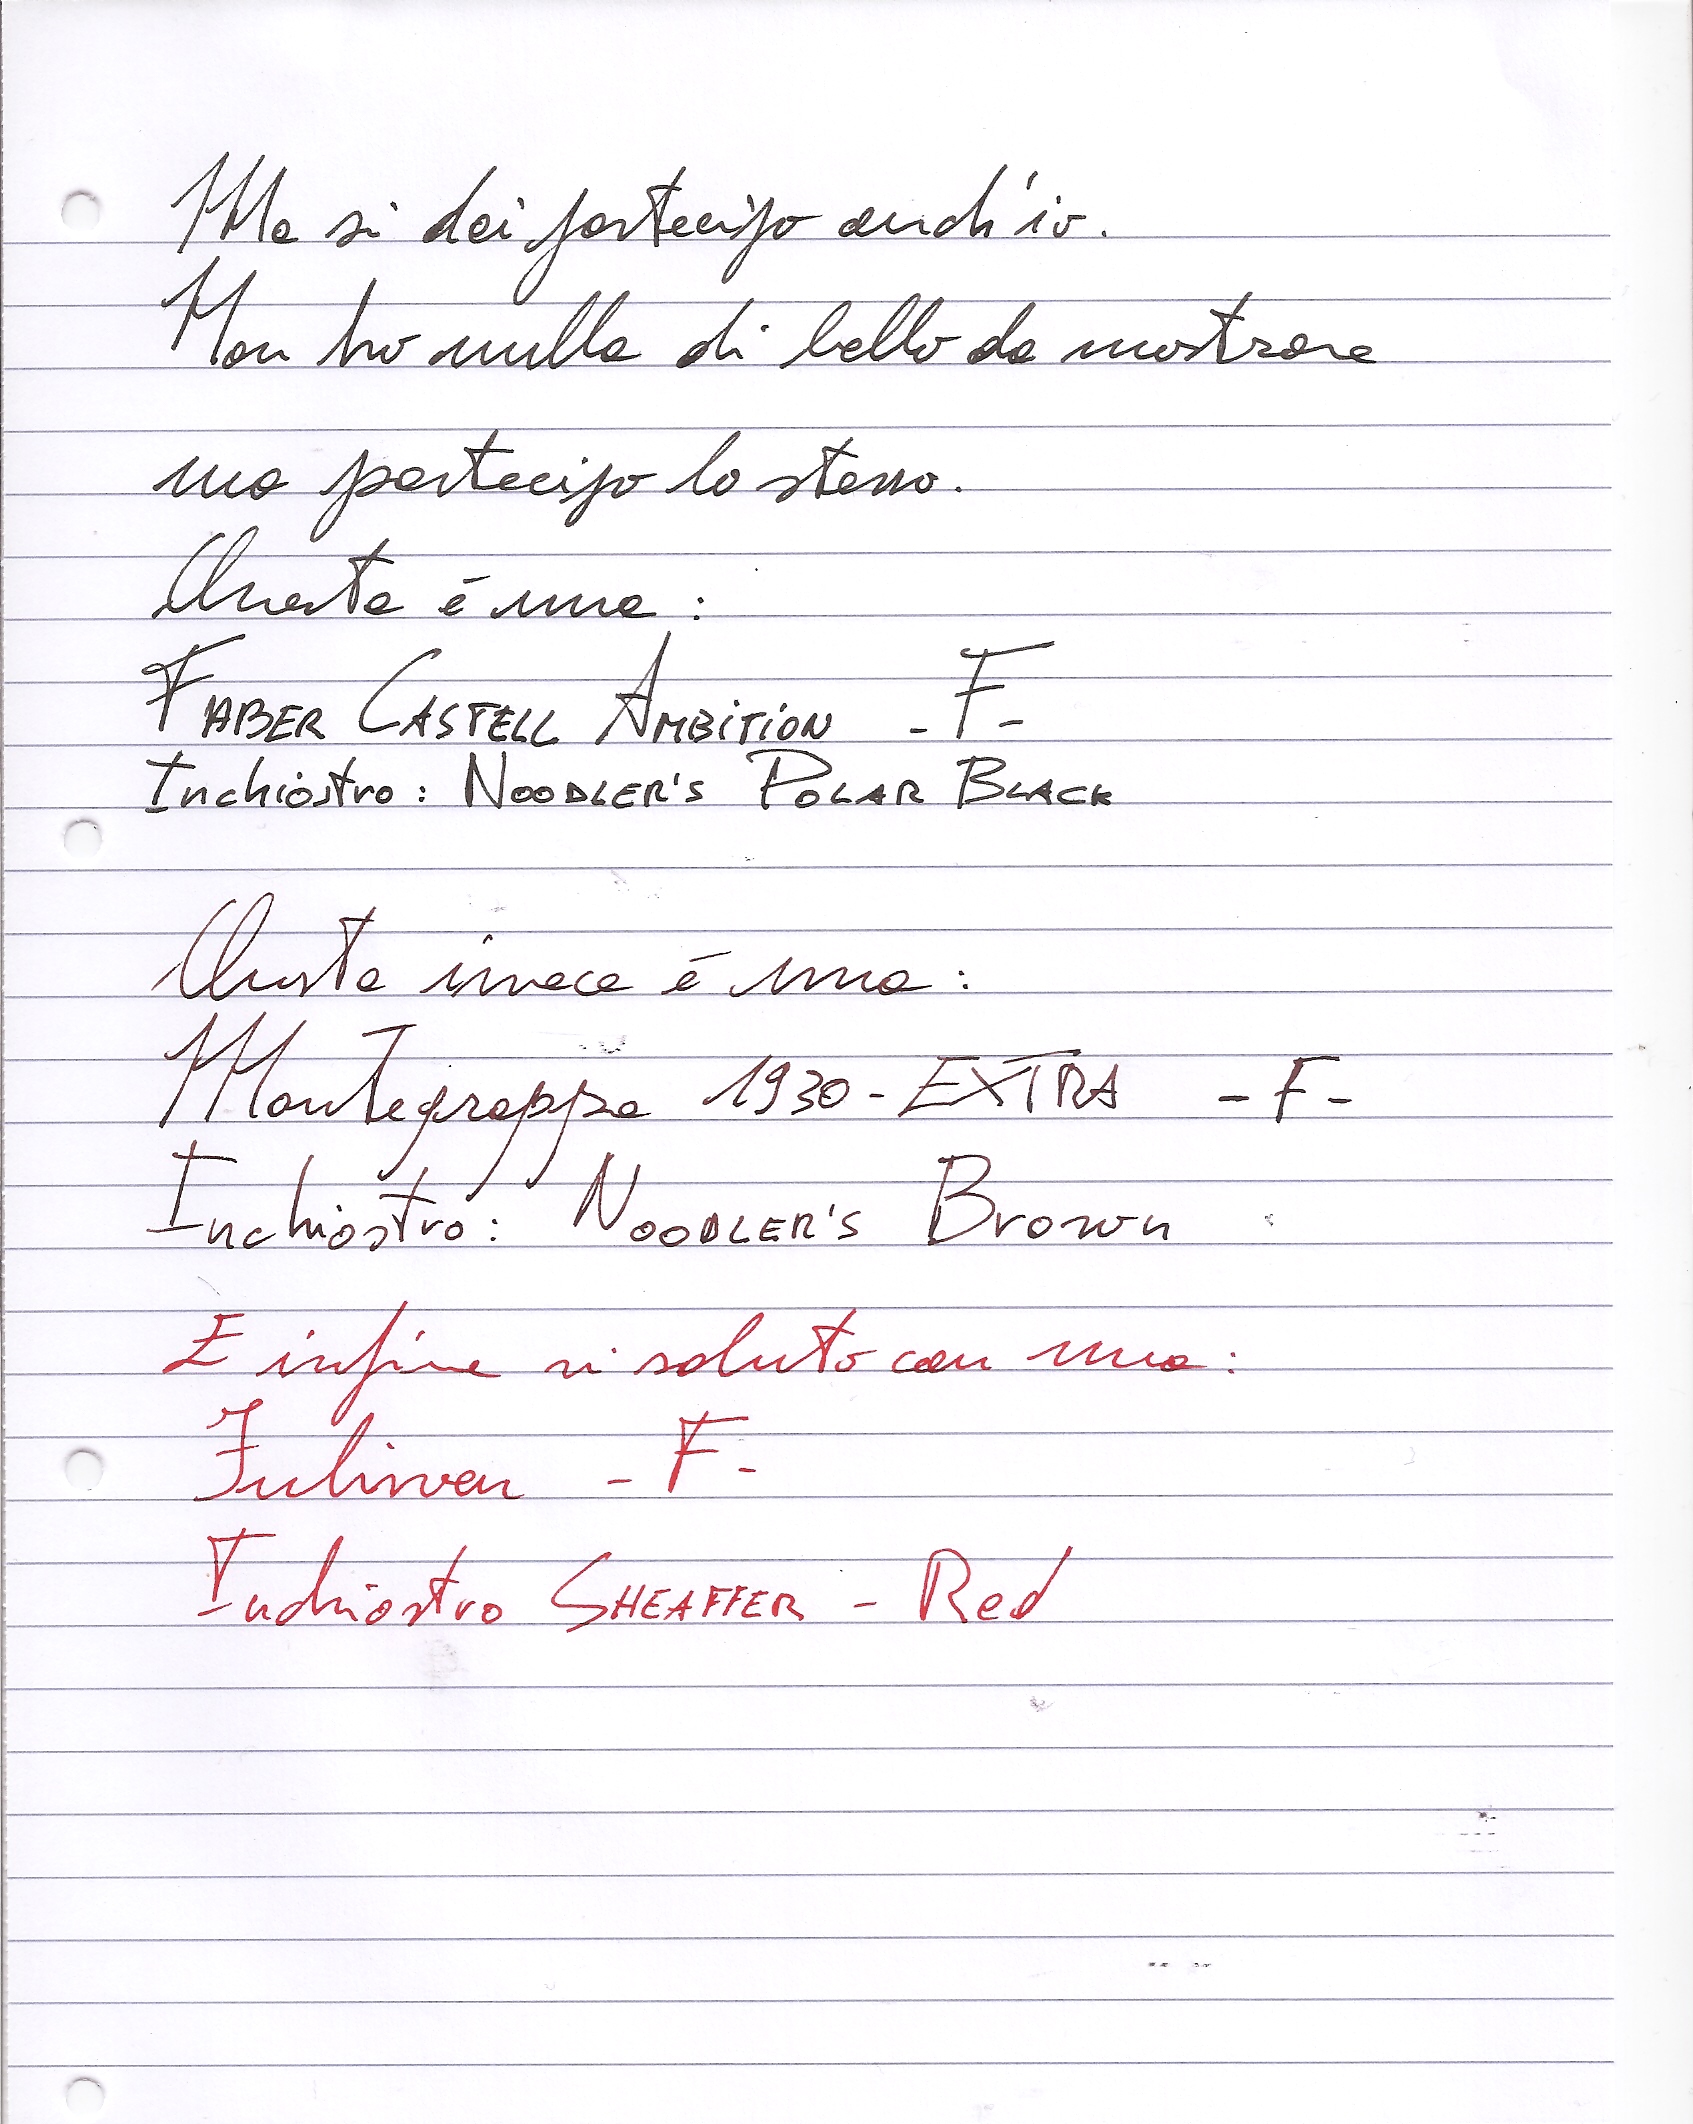 Ma si dai partecipo anch'io.
Non ho nulla di bello da mostrare
ma partecipo lo stesso.
Questa è una:
FABER CASTELL AMBITION - F -
Inchiostro: NOODLER'S POLAR BLACK
Questa invece è una:
Montegrappa 1930 - EXTRA - F -
Inchiostro: NOODLER'S Brown
E infine vi saluto con una:
- F -
Inchiostro SHEAFFER - Red